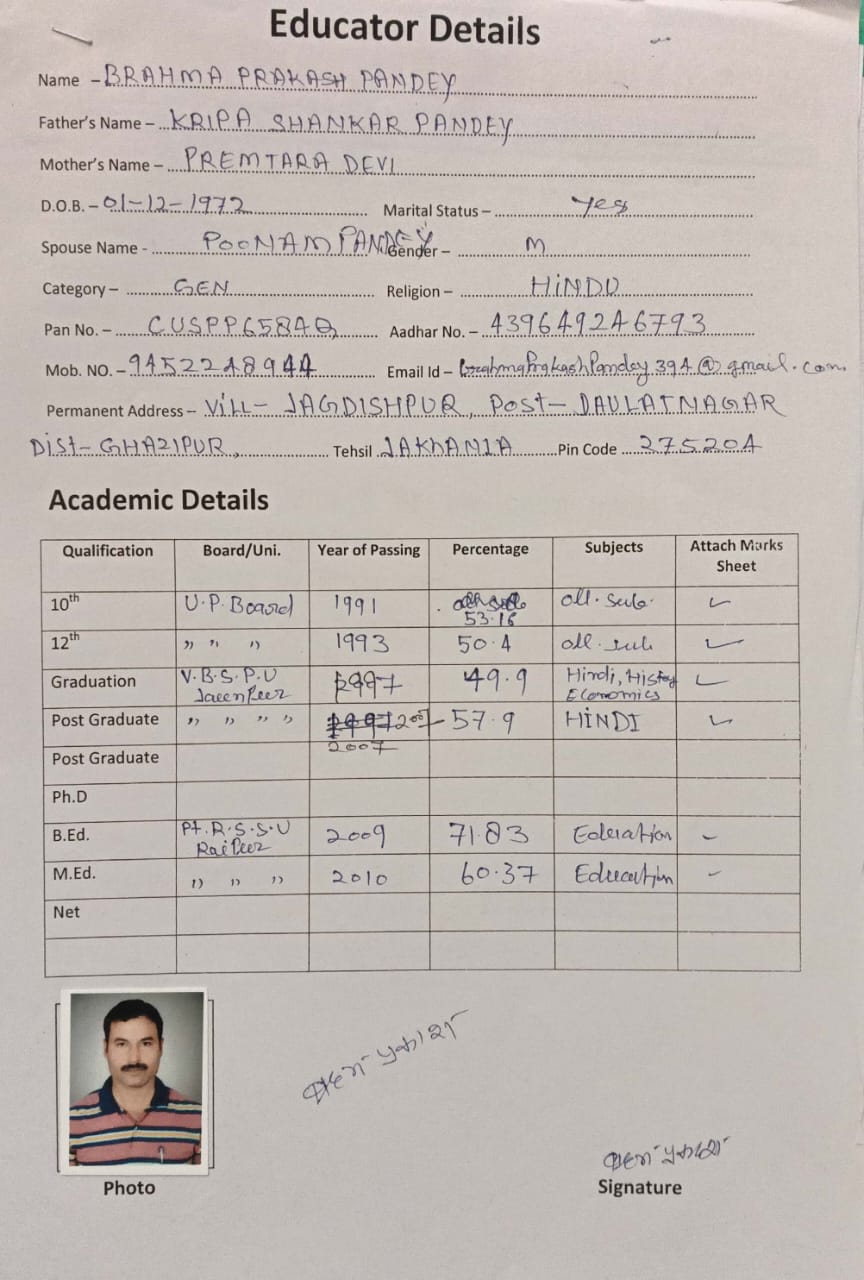 Educator Details
Name - BRAHMA PRAKASH PANDEY
Father's Name - KRIPA SHANKAR PANDEY
Mother's Name - PREMTARA DEVI
D.O.B. - 01-12-1972 Marital Status - Yes
Spouse Name - POONAM PANDEY Gender - M
Category - GEN Religion - HINDU
Pan No. - CUSPP6584Q Aadhar No. - 439649246793
Mob. NO. - 9452248944 Email Id - brahmaprakashpandey394@gmail.com
Permanent Address - Vill- JAGDISHPUR, Post- DAULATNAGAR
Dist- GHAZIPUR, Tehsil JAKHANIA Pin Code 275204
Academic Details
Qualification Board/Uni. Year of Passing Percentage Subjects Attach Marks Sheet
10th U.P. Board 1991 53.16 all. sub.
12th " " " 1993 50.4 all. sub
Graduation V.B.S.P.U 1997 49.9 Hindi, History
Economics
Post Graduate " " " " 2007 57.9 HINDI
2007
Post Graduate
Ph.D
B.Ed. Pt. R.S.S.U 2009 71.83 Education
M.Ed. " " " 2010 60.37 Education
Net
ब्रह्म प्रकाश
ब्रह्म प्रकाश
Photo Signature